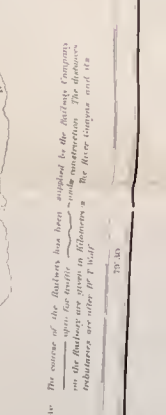 The course of the Railway has been supplied by the Railway Company
open for traffic under construction The distances
on the Railway are given in Kilometres The River Guayas and its
tributaries are after Dr T Wolf